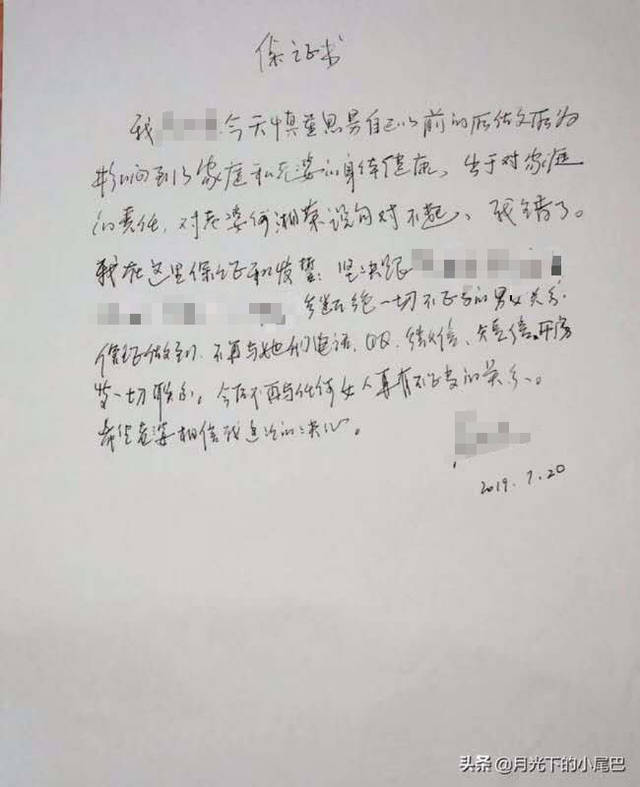 保证书
我 今天慎重思考自己以前的所做所为
影响到了家庭和老婆的身体健康、出于对家庭
的责任,对老婆何湘荣说句对不起、我错了。
我在这里保证和发誓:坚决跟
断绝一切不正当的男女关系.
保证做到.不再与她们电话、QQ、微信、短信、开房
等一切联系。今后不再与任何女人再有不正当的关系。
希望老婆相信我这次的决心。
2019.7.20
头条 @月光下的小尾巴